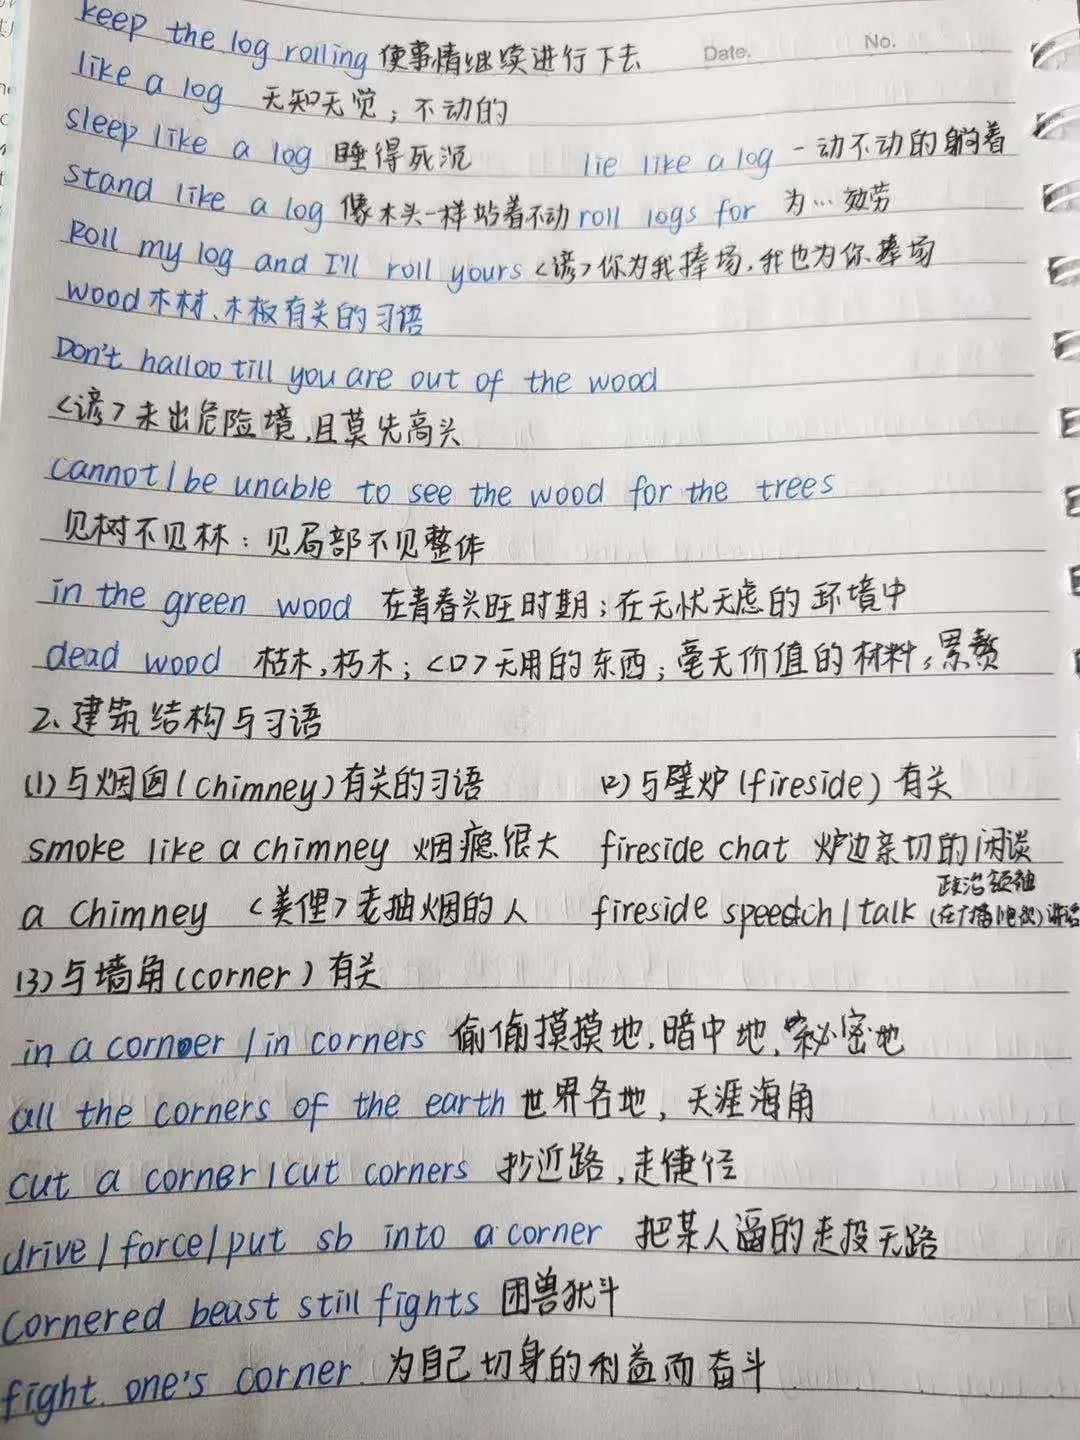 keep the log rolling 使事情继续进行下去 Date. No.
like a log 无知无觉；不动的
sleep like a log 睡得死沉 lie like a log 一动不动的躺着
stand like a log 像木头一样站着不动 roll logs for 为…效劳
Roll my log and I'll roll yours <谚>你为我捧场，我也为你捧场
wood 木材、木板有关的习语
Don't halloo till you are out of the wood
<谚>未出危险境，且莫先高头
cannot/be unable to see the wood for the trees
见树不见林：见局部不见整体
in the green wood 在青春兴旺时期；在无忧无虑的环境中
dead wood 枯木，朽木；<口>无用的东西；毫无价值的材料；累赘
2、建筑结构与习语
(1)与烟囱(chimney)有关的习语 (2)与壁炉(fireside)有关
smoke like a chimney 烟瘾很大 fireside chat 炉边亲切的闲谈
政治领袖
a chimney <美俚>老抽烟的人 fireside speech/talk (在广播/电视)讲话
(3)与墙角(corner)有关
in a corner/in corners 偷偷摸摸地，暗中地，秘密地
all the corners of the earth 世界各地，天涯海角
cut a corner/cut corners 抄近路，走捷径
drive/force/put sb into a corner 把某人逼的走投无路
cornered beast still fights 困兽犹斗
fight one's corner 为自己切身的利益而奋斗